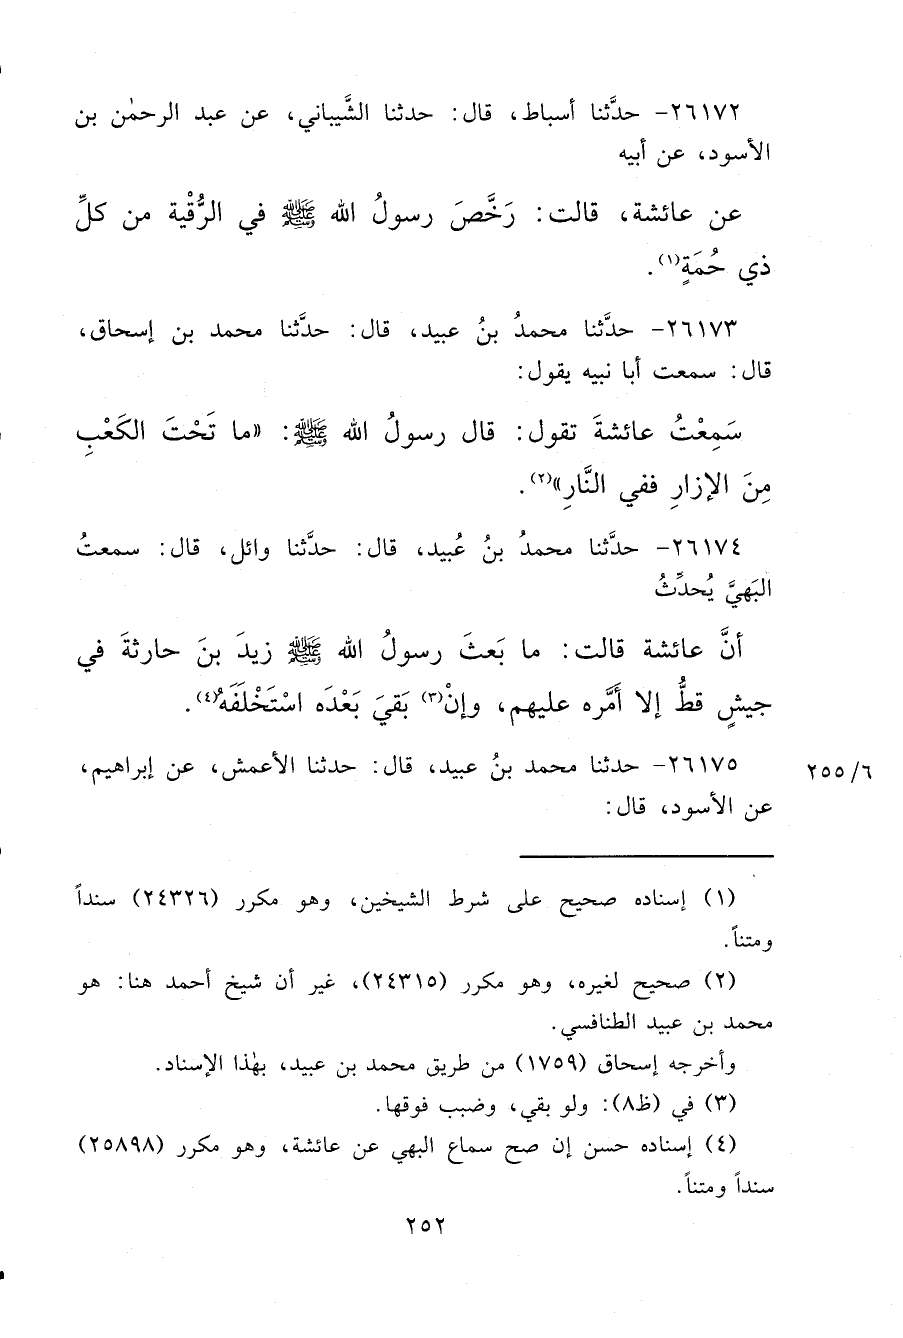 ٢٦١٧٢- حدَّثنا أسباط، قال: حدثنا الشَّيباني، عن عبد الرحمٰن بن
الأسود، عن أبيه
عن عائشة، قالت: رَخَّصَ رسولُ الله ﷺ في الرُّقْية من كلِّ
ذي حُمَةٍ(١).
٢٦١٧٣- حدَّثنا محمدُ بنُ عبيد، قال: حدَّثنا محمد بن إسحاق،
قال: سمعت أبا نبيه يقول:
سَمِعْتُ عائشةَ تقول: قال رسولُ الله ﷺ: «ما تَحْتَ الكَعْبِ
مِنَ الإزارِ ففي النَّارِ»(٢).
٢٦١٧٤- حدَّثنا محمدُ بنُ عُبيد، قال: حدَّثنا وائل، قال: سمعتُ
البَهيَّ يُحدِّثُ
أنَّ عائشة قالت: ما بَعثَ رسولُ الله ﷺ زيدَ بنَ حارثةَ في
جيشٍ قطُّ إلا أَمَّره عليهم، وإنْ(٣) بَقيَ بَعْدَه اسْتَخْلَفَهُ(٤).
٢٦١٧٥- حدثنا محمد بنُ عبيد، قال: حدثنا الأعمش، عن إبراهيم،
٢٥٥/٦
عن الأسود، قال:
(١) إسناده صحيح على شرط الشيخين، وهو مكرر (٢٤٣٢٦) سنداً
ومتناً.
(٢) صحيح لغيره، وهو مكرر (٢٤٣١٥)، غير أن شيخ أحمد هنا: هو
محمد بن عبيد الطنافسي.
وأخرجه إسحاق (١٧٥٩) من طريق محمد بن عبيد، بهٰذا الإسناد.
(٣) في (ظ٨): ولو بقي، وضبب فوقها.
(٤) إسناده حسن إن صح سماع البهي عن عائشة، وهو مكرر (٢٥٨٩٨)
سنداً ومتناً.
٢٥٢